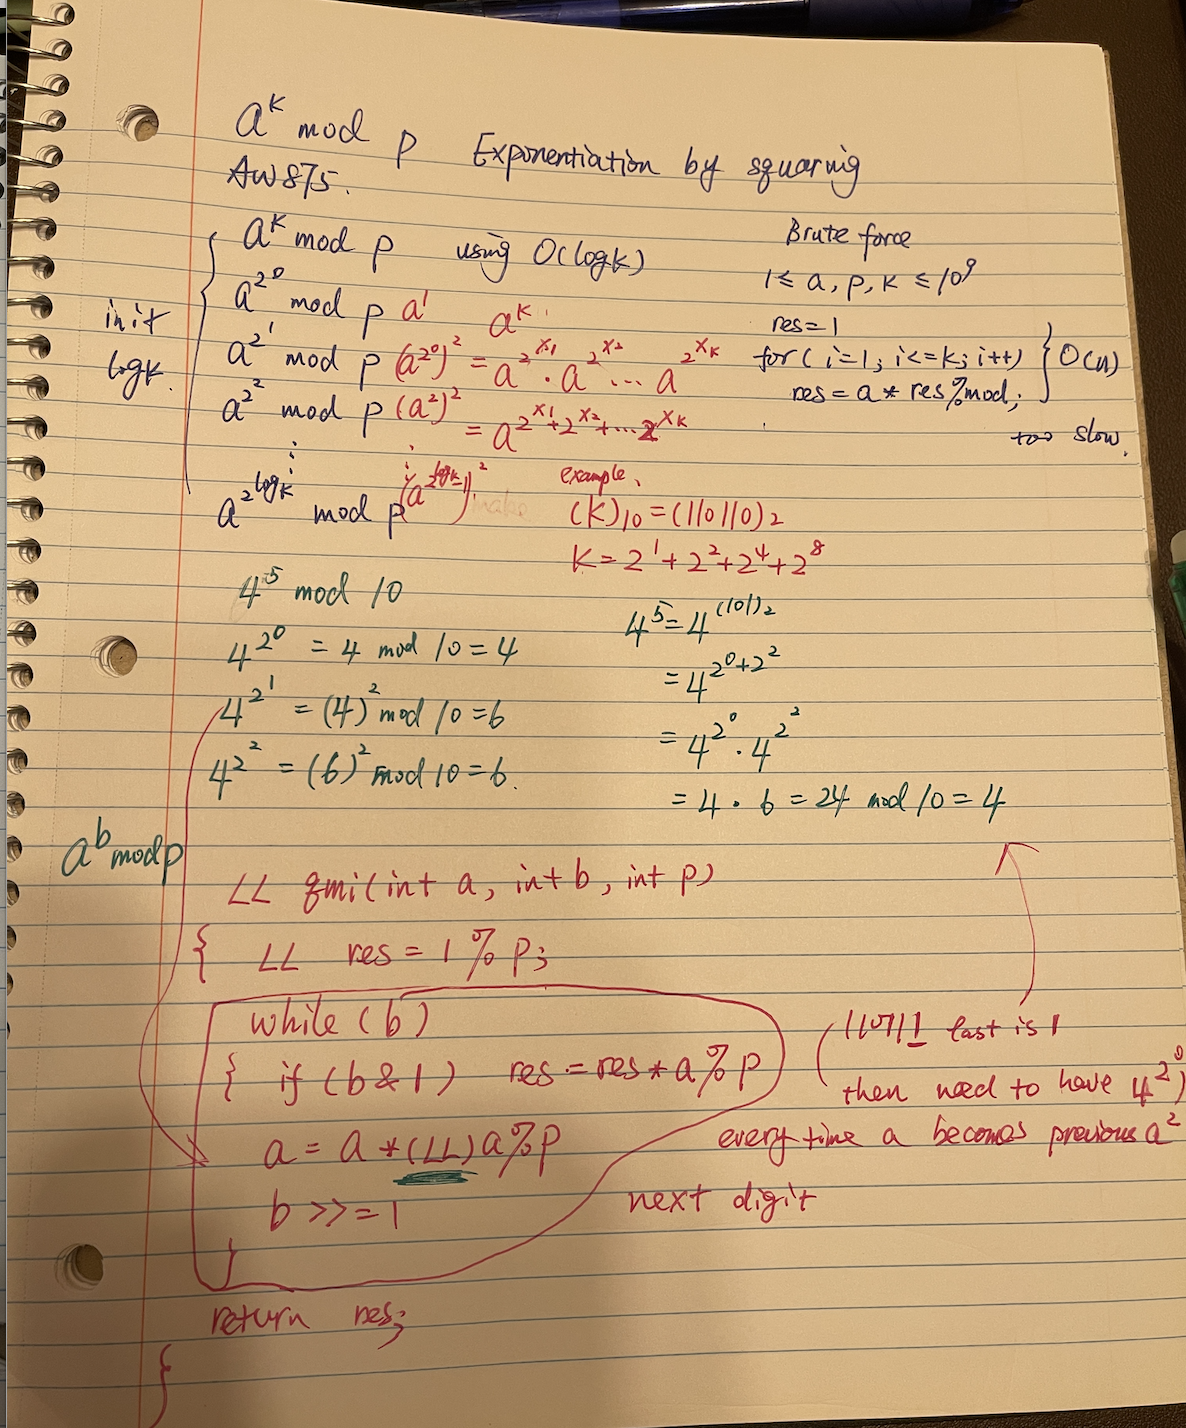 a^k mod p Exponentiation by squaring
AW875.
a^k mod p using O(logk)
a^{2^0} mod p a^1 a^k
a^{2^1} mod p (a^{2^0})^2 = a^{2^{x1}} · a^{2^{x2}} ... a^{2^{xk}}
a^{2^2} mod p (a^2)^2 = a^{2^{x1}+2^{x2}+...2^{xk}}
⋮ ⋮
a^{2^{logk}} mod p (a^{2^{logk-1}})^2
init
logk.
Brute force
1 ≤ a, p, k ≤ 10^9
res=1
for( i=1; i<=k; i++) } O(n)
res = a * res%mod;
too slow.
example.
(k)_10 = (110110)_2
k = 2^1 + 2^2 + 2^4 + 2^8
4^5 mod 10
4^{2^0} = 4 mod 10 = 4
4^{2^1} = (4)^2 mod 10 = 6
4^{2^2} = (6)^2 mod 10 = 6.
4^5 = 4^{(101)_2}
= 4^{2^0+2^2}
= 4^{2^0} · 4^{2^2}
= 4 · 6 = 24 mod 10 = 4
a^b mod p
LL qmi(int a, int b, int p)
{ LL res = 1 % p;
while (b)
{ if (b & 1) res = res * a % p
a = a * (LL) a % p
b >>= 1
}
return res;
}
(110111 last is 1
then need to have 4^{2^0})
every time a becomes previous a^2
next digit